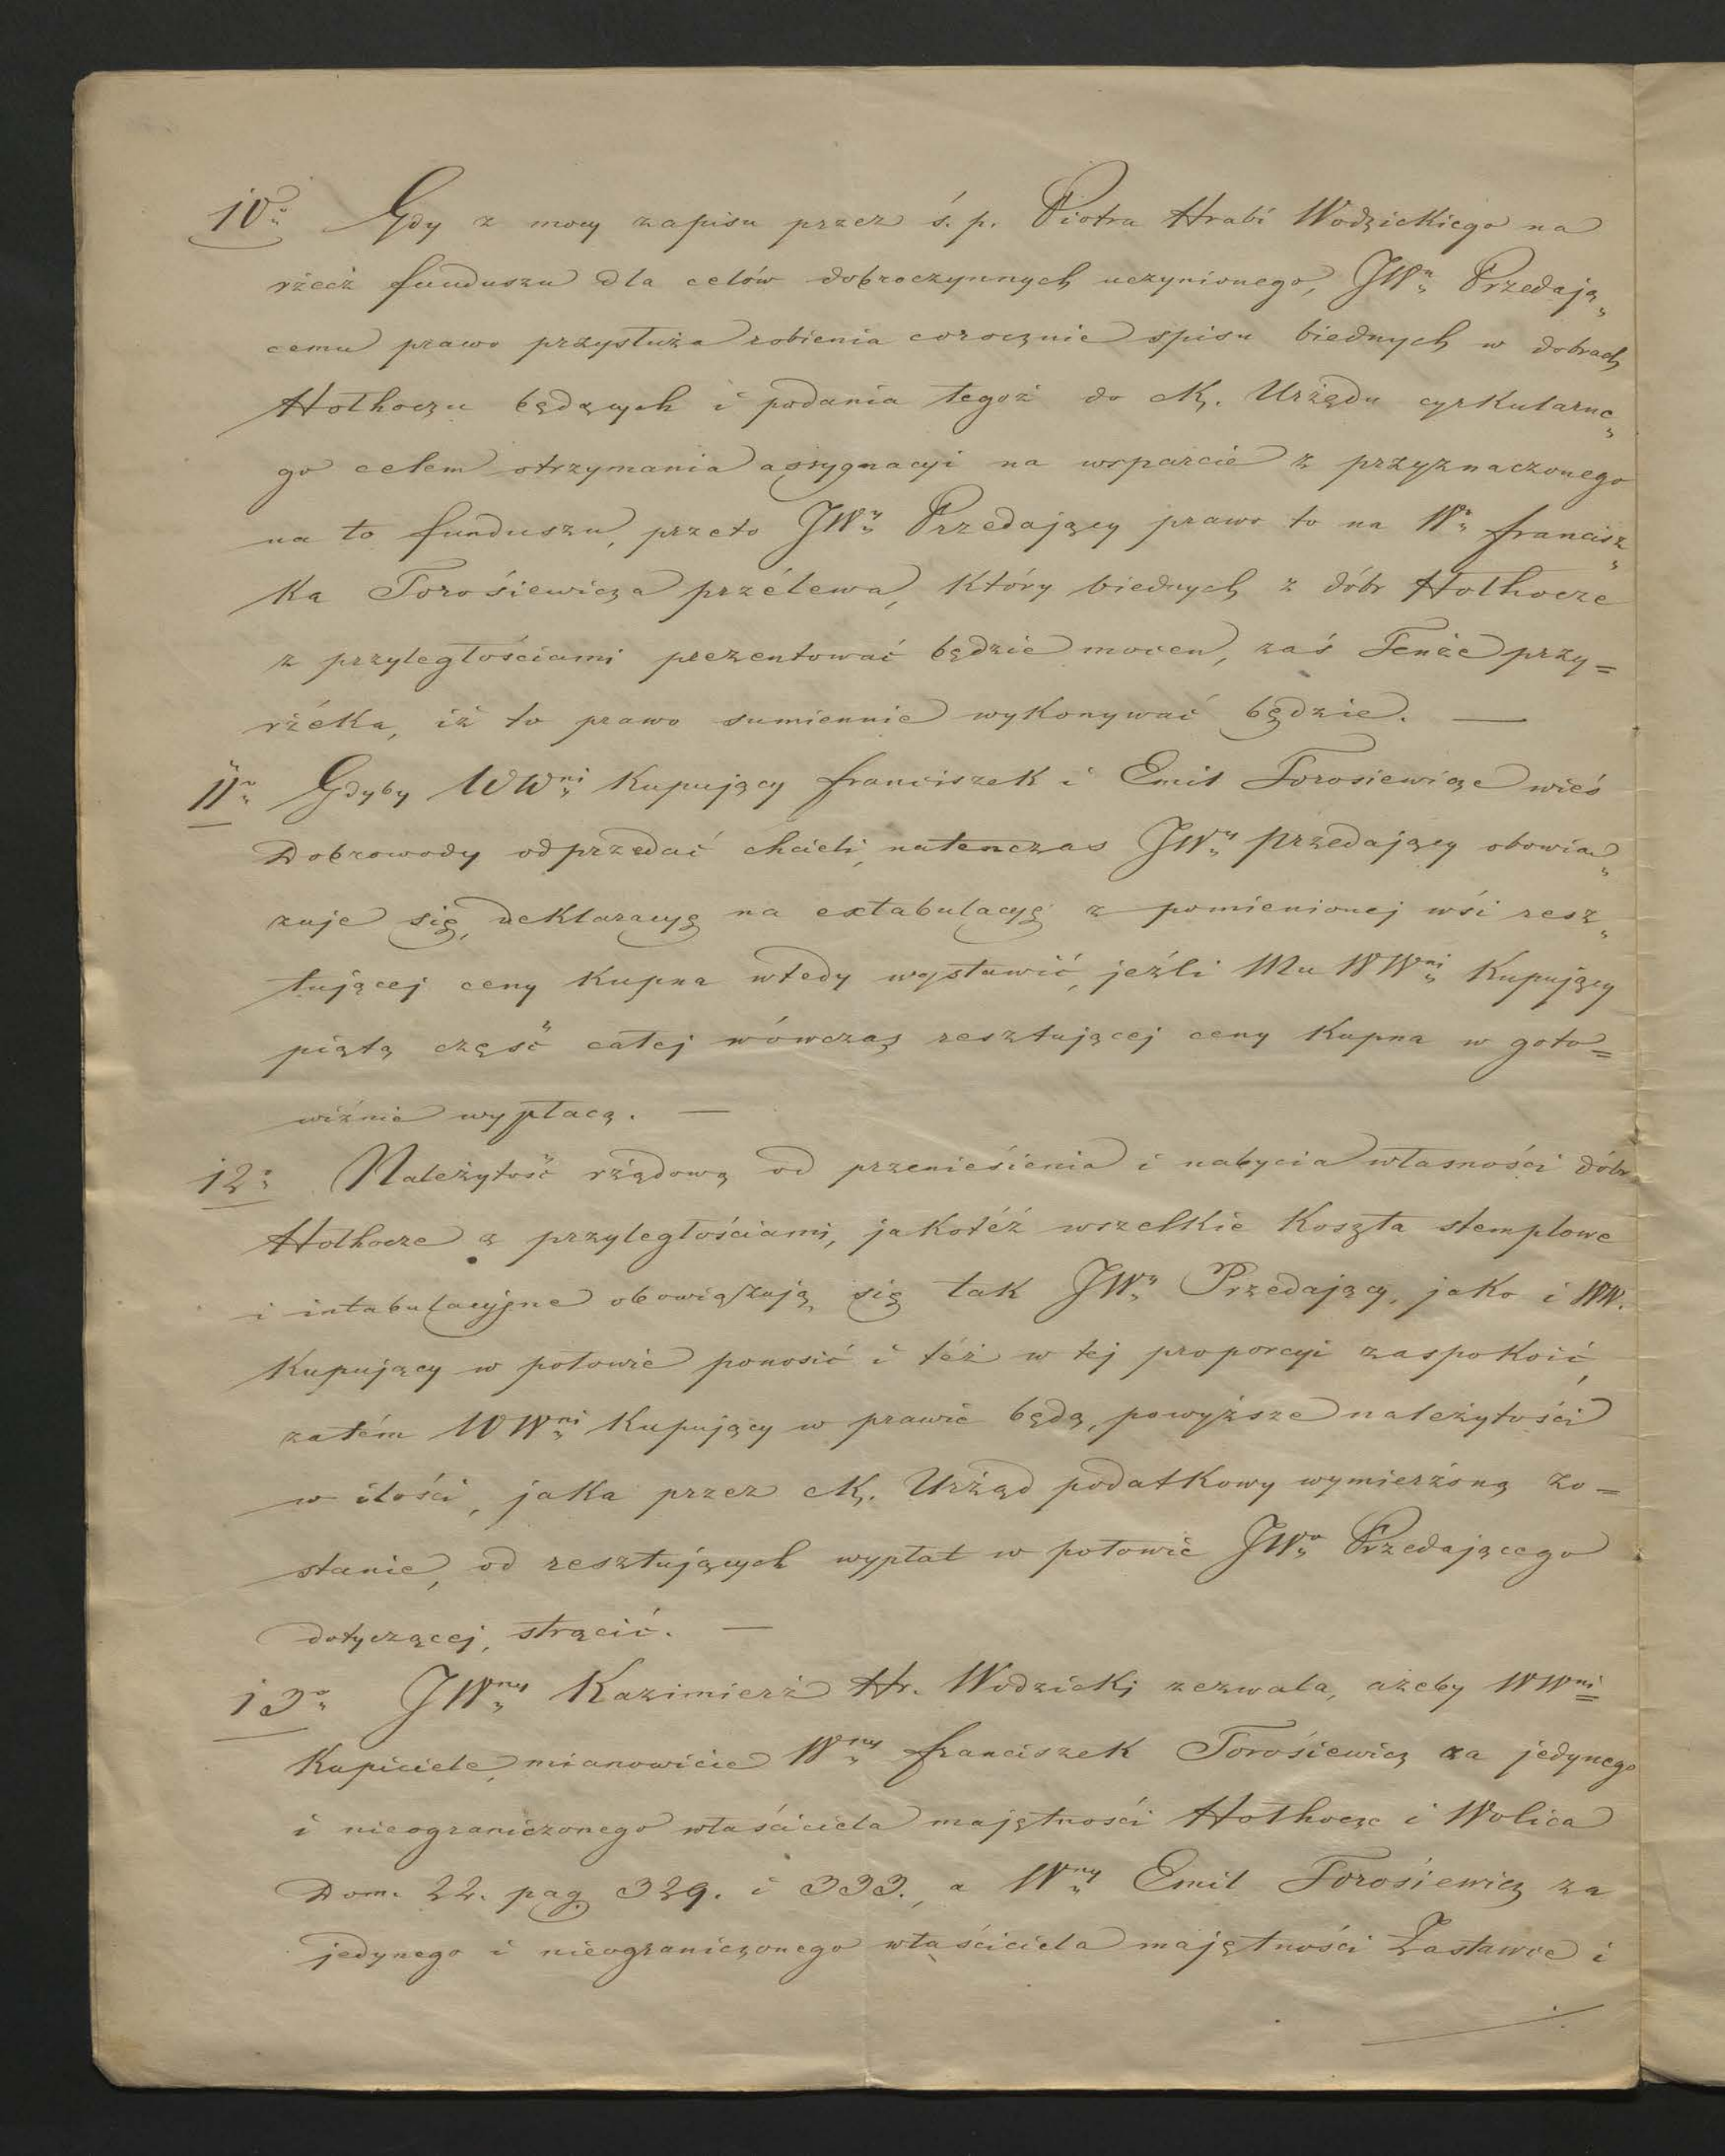 10o Gdy z mocy zapisu przez ś. p. Piotra Hrabi Wodzickiego na
rzecz funduszu dla celów dobroczynnych uczynionego, JWu Przedają„
cemu prawo przysłuża robienia corocznie spisu biednych w dobrach
Hołhoczu będących i podania tegoż do ck. Urzędu cyrkularne„
go celem otrzymania assygnacyi na wsparcie z przyznaczonego
na to funduszu, przeto JWy Przedający prawo to na Wo Francisz„
ka Torosiewicza przélewa, który biednych z dóbr Hołhocze
z przyległościami prezentować będzie mocen, zaś Tenże przy=
rzéka, iż to prawo sumiennie wykonywać będzie. —
11o Gdyby WWni Kupujący Franciszek i Emil Torosiewicze wieś
Dobrowody odprzedać chcieli, natenczas JWy Przedający obowią„
zuje się, deklaracyę na extabulacyę z pomienionej wsi resz„
tującej ceny kupna wtedy wystawić, jeźli Mu WWni Kupujący
piątą część całej wówczas resztującej ceny Kupna w goto=
wiźnie wypłacą. —
12o Należytość rządową od przeniesienia i nabycia własności dóbr
Hołhocze z przyległościami, jakotéż wszelkie Koszta stemplowe
i intabulacyjne obowiązują się tak JWy Przedający, jako i WW.
Kupujący w połowie ponosić i też w tej proporcyi zaspokoić,
zatém WWni Kupujący w prawie będą, powyższe należytości
w ilości, jaka przez ck. Urząd podatkowy wymierzoną zo=
stanie, od resztujących wypłat w połowie JWo Przedającego
dotyczącej, strącić. —
13o JWny Kazimierz Hr. Wodzicki zezwala, ażeby WWni
Kupiciele, mianowicie Wny Franciszek Torosiewicz za jedynego
i nieograniczonego właściciela majętności Hołhocze i Wolica
Dom. 22. pag. 329. i 333., a Wny Emil Torosiewicz za
jedynego i nieograniczonego właściciela majętności Zastawce i